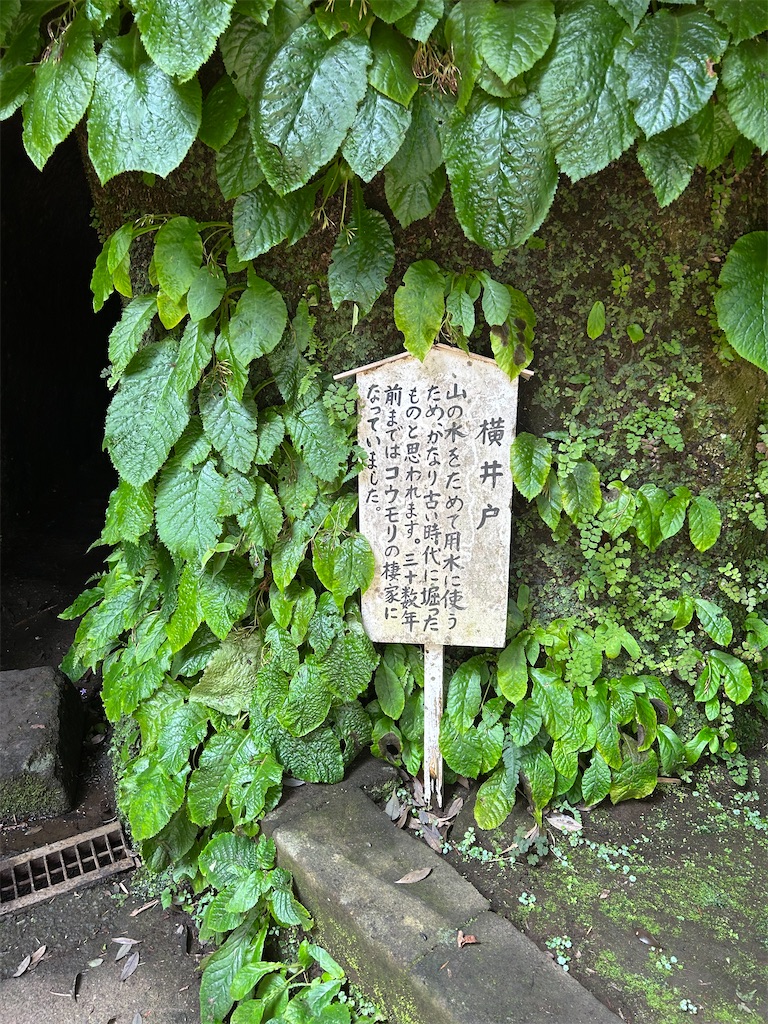 横井戸
山の水をためて用水に使う
ため、かなり古い時代に堀った
ものと思われます。三十数年
前までは コウモリの棲家に
なっていました。